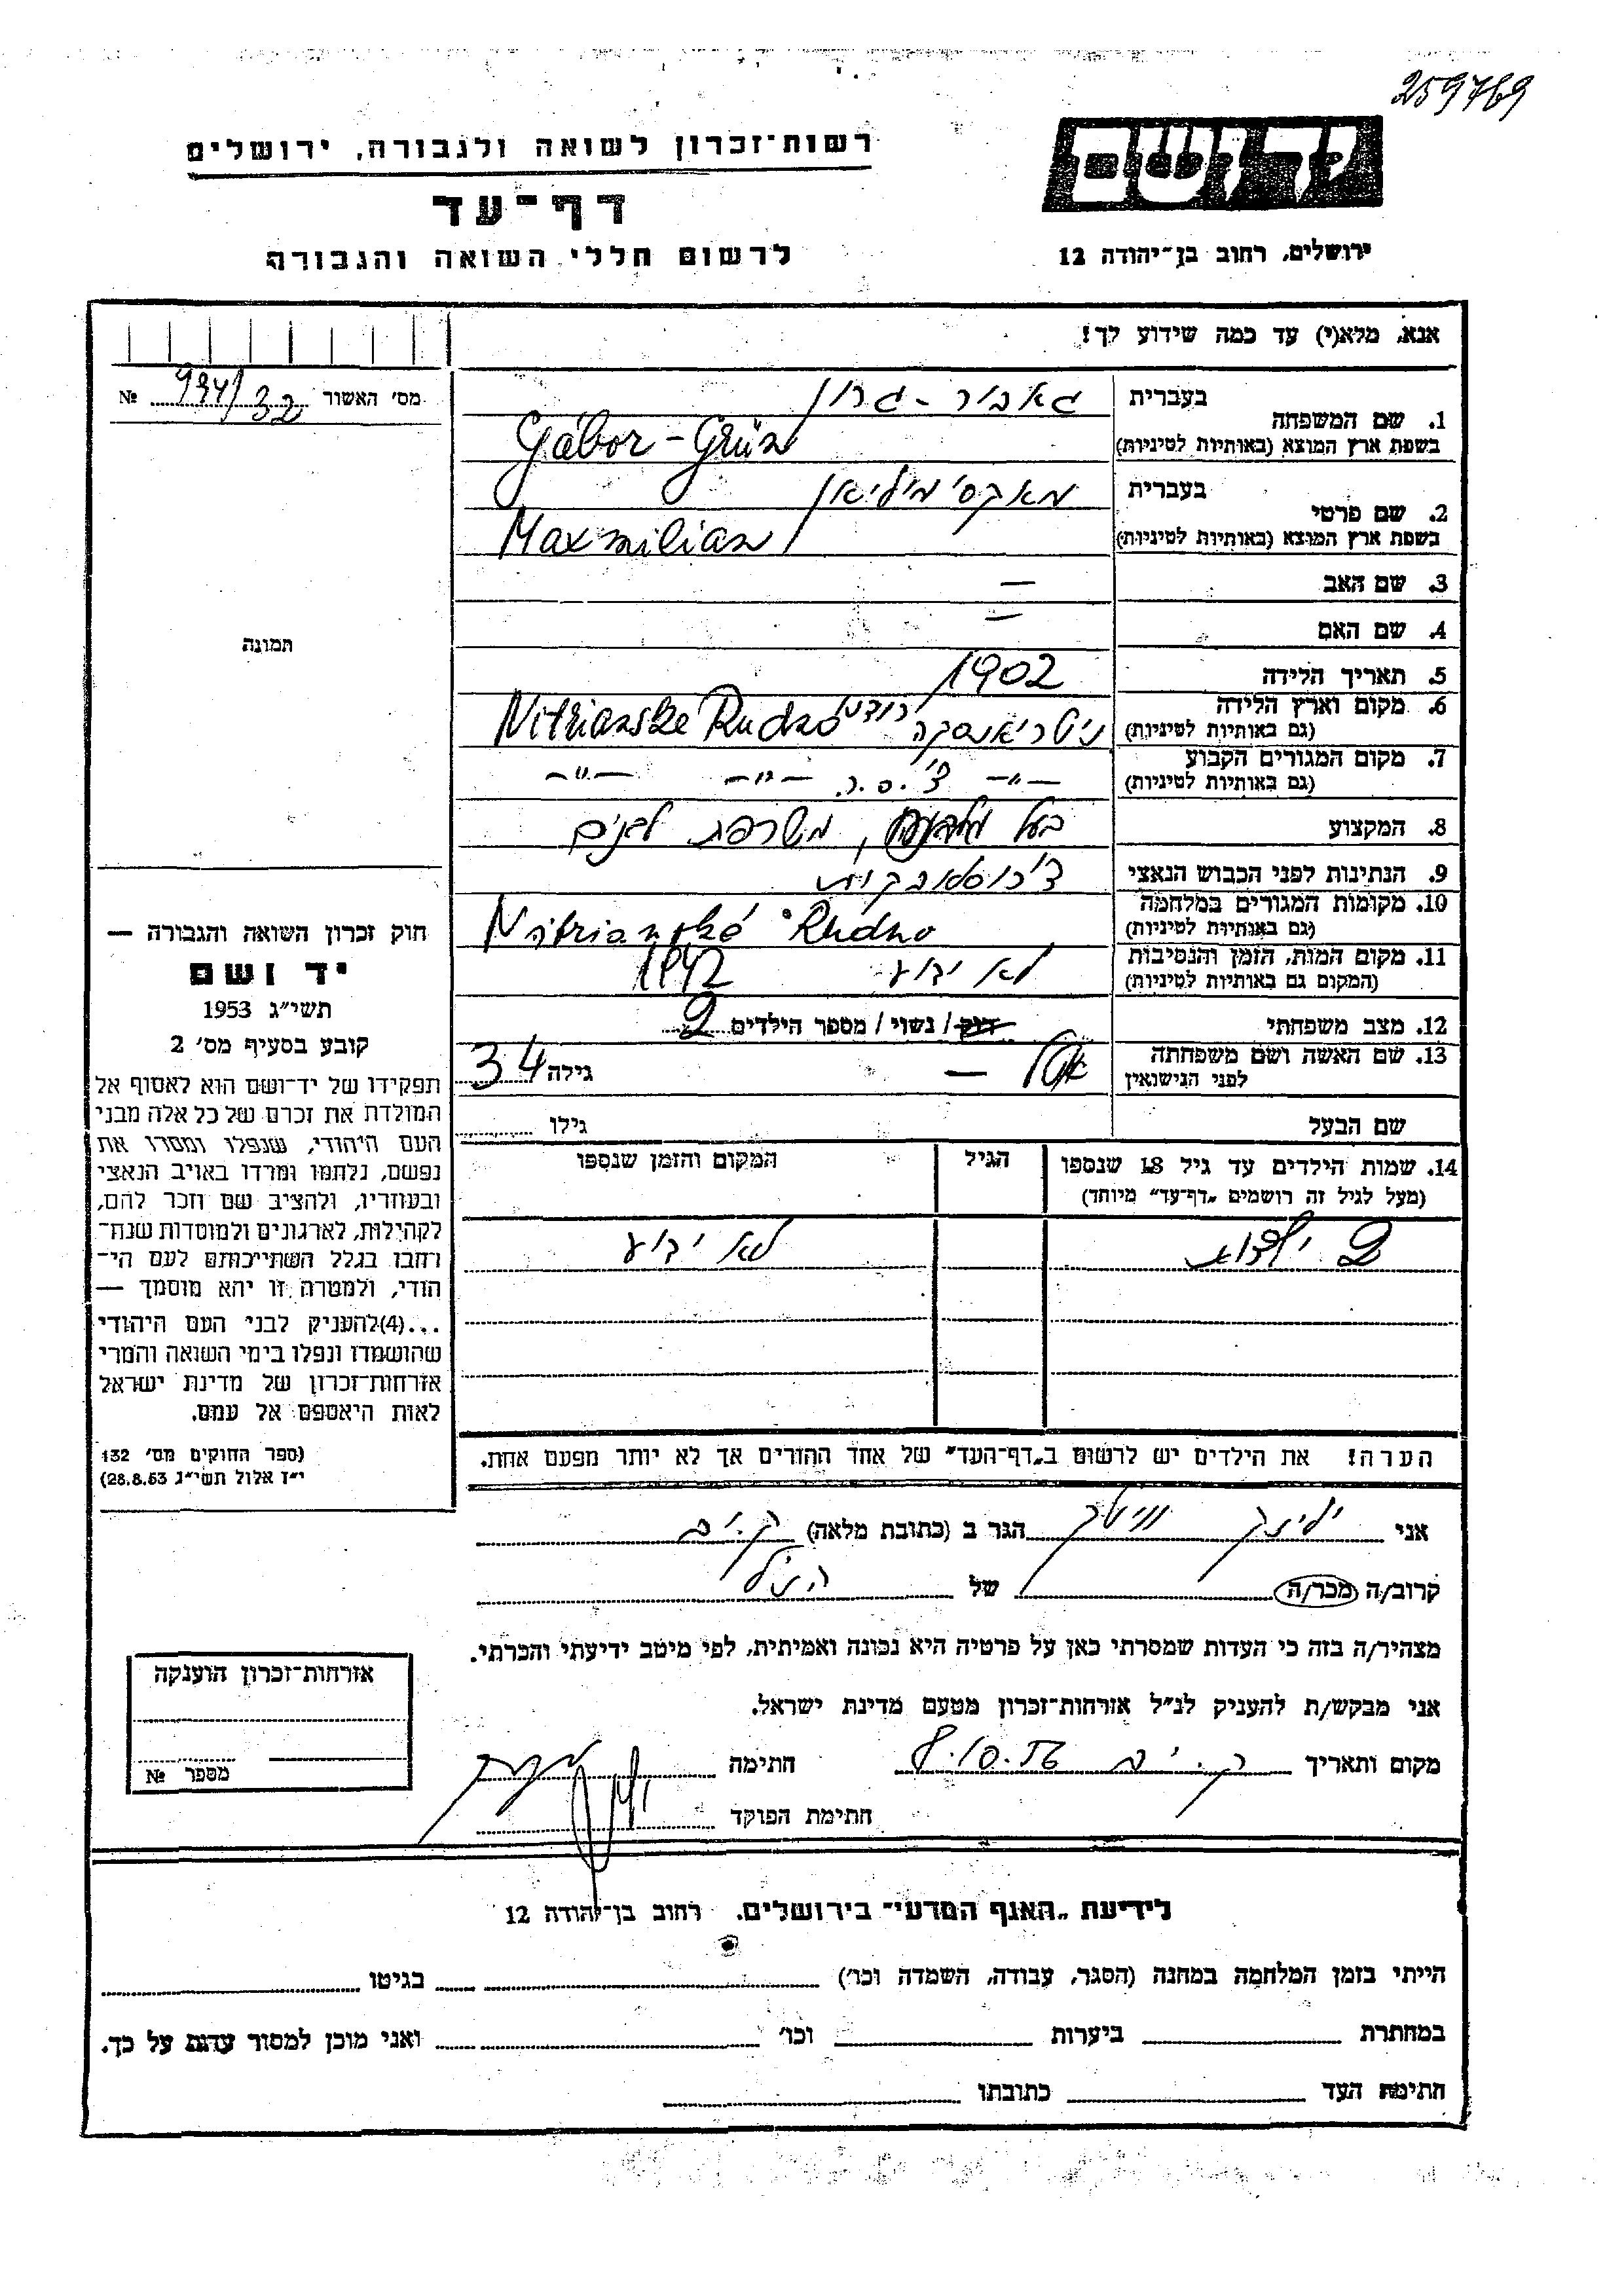 259769
יד ושם
ירושלים, רחוב בן־יהודה 12
רשות־זכרון לשואה ולגבורה, ירושלים
דף־עד
לרשום חללי השואה והגבורה
אנא, מלא(י) עד כמה שידוע לך!
מס׳ האשור 994/32 №
תמונה
חוק זכרון השואה והגבורה —
יד ושם
תשי״ג 1953
קובע בסעיף מס׳ 2
תפקידו של יד־ושם הוא לאסוף אל
המולדת את זכרם של כל אלה מבני
העם היהודי, שנפלו ומסרו את
נפשם, נלחמו ומרדו באויב הנאצי
ובעוזריו, ולהציב שם וזכר להם,
לקהילות, לארגונים ולמוסדות שנח־
רחבו בגלל השתייכותם לעם הי־
הודי, ולמטרה זו יהא מוסמך —
...(4)להעניק לבני העם היהודי
שהושמדו ונפלו בימי השואה והמרי
אזרחות־זכרון של מדינת ישראל
לאות היאספם אל עמם.
(ספר החוקים מס׳ 132
י״ז אלול תשי״ג 28.8.53)
1. שם המשפחה
בעברית גאבור - גרון
בשפת ארץ המוצא (באותיות לטיניות) Gábor - Grün
2. שם פרטי
בעברית מאקסימיליאן
בשפת ארץ המוצא (באותיות לטיניות) Maxmilian
3. שם האב —
4. שם האם —
5. תאריך הלידה 1902
6. מקום וארץ הלידה ניטריאנסקה רודנו Nitrianske Rudno
(גם באותיות לטיניות)
7. מקום המגורים הקבוע —״— צ׳.ס.ר. —״— —״—
(גם באותיות לטיניות)
8. המקצוע בעל משרפת לבנים
9. הנתינות לפני הכבוש הנאצי צ׳כוסלובקית
10. מקומות המגורים במלחמה Nitrianské Rudno
(גם באותיות לטיניות)
11. מקום המות, הזמן והנסיבות לא ידוע 1942
(המקום גם באותיות לטיניות)
12. מצב משפחתי רוק / נשוי / מספר הילדים 2
13. שם האשה ושם משפחתה — גילה 34
לפני הנישואין
שם הבעל גילו
14. שמות הילדים עד גיל 18 שנספו הגיל המקום והזמן שנספו
(מעל לגיל זה רושמים „דף־עד״ מיוחד)
2 ילדות לא ידוע
הערה! את הילדים יש לרשום ב„דף־העד״ של אחד ההורים אך לא יותר מפעם אחת.
אני הגר ב (כתובת מלאה) ק. ים
קרוב/ה מכר/ה של הנ״ל
מצהיר/ה בזה כי העדות שמסרתי כאן על פרטיה היא נכונה ואמיתית, לפי מיטב ידיעתי והכרתי.
אני מבקש/ת להעניק לנ״ל אזרחות־זכרון מטעם מדינת ישראל.
מקום ותאריך ק. ים 8.10.56 חתימה
חתימת הפוקד
אזרחות־זכרון הוענקה
מספר №
לידיעת „האגף המדעי״ בירושלים, רחוב בן־יהודה 12
הייתי בזמן המלחמה במחנה (הסגר, עבודה, השמדה וכו׳) בגיטו
במחתרת ביערות וכו׳ ואני מוכן למסור עדות על כך.
חתימת העד כתובתו